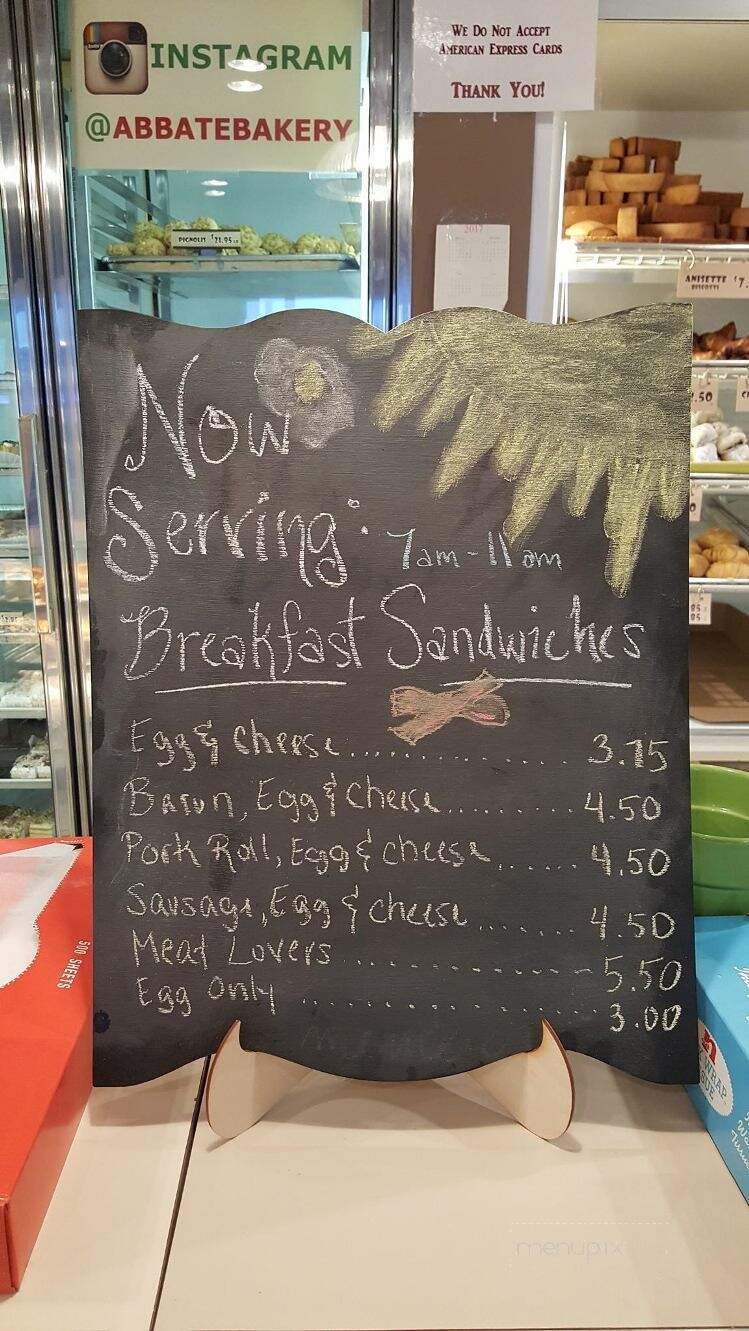 INSTAGRAM
@ABBATEBAKERY
WE DO NOT ACCEPT
AMERICAN EXPRESS CARDS
THANK YOU!
PIGNOLIS $21.95 LB
2017
ANISETTE $7.
BISCOTTI
.50
Now
Serving: 7am-11am
Breakfast Sandwiches
Egg & cheese.................. 3.75
Bacon, Egg & cheese......... 4.50
Pork Roll, Egg & cheese....... 4.50
Sausage, Egg & cheese....... 4.50
Meat Lovers.................. 5.50
Egg Only .................. 3.00
500 SHEETS
WRAP
menupix